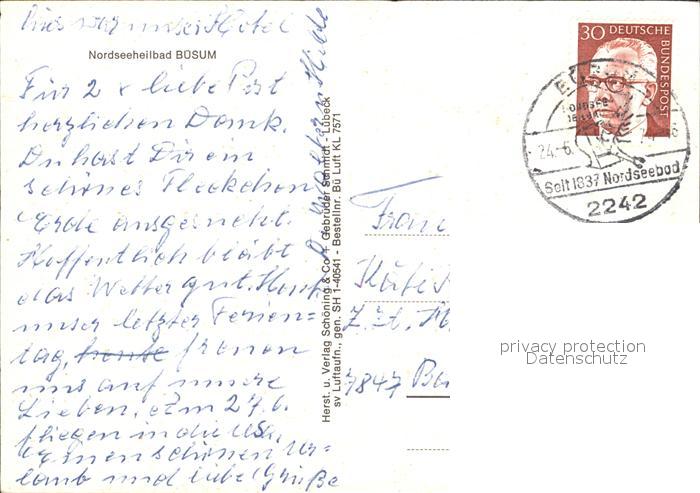 Dies war unser Hotel
Nordseeheilbad BÜSUM
Für 2 x liebe Post
herzlichen Dank.
Du hast Dir ein
schönes Fleckchen
Erde ausgesucht.
Hoffentlich bleibt
das Wetter gut. Heute
unser letzter Ferien=
tag, heute freuen
uns auf unsere
Lieben. Am 27.6.
fliegen in die USA.
schönen Ur=
laub und liebe Grüße
Herst. u. Verlag Schöning & Co + Gebrüder Schmidt - Lübeck
sv Luftaufn., gen. SH 1-40541 - Bestellnr. Bü Luft KL 7571
30 DEUTSCHE BUNDESPOST
24.-6.
Seit 1837 Nordseebad
2242
Frau
Käti
z. Zt.
7847 Ba
privacy protection
Datenschutz